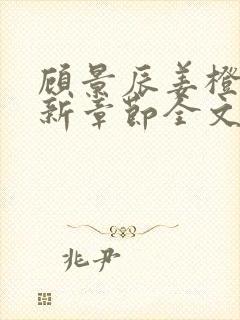 顾景辰姜橙
新章节全文
兆尹